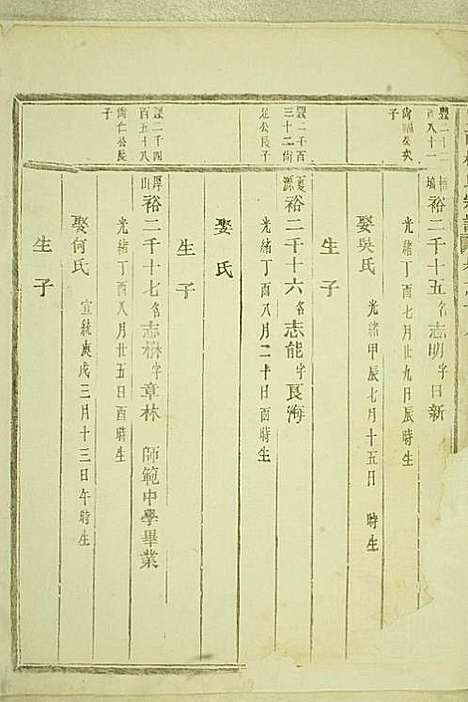 豐二千二
百八十一
尚福公次
子
裕二千十五名志明字日新
光緒丁酉七月廿九日辰時生
娶吳氏 光緒甲辰七月十五日 時生
生子
豐二千百
三十二尚
足公長子
夏源
裕二千十六名志能字良海
光緒丁酉八月二十日酉時生
娶 氏
生子
豐二千四
百五十八
尚仁公長
子
厚山
裕二千十七名志林字章林 師範中學畢業
光緒丁酉八月廿五日酉時生
娶何氏 宣統庚戌三月十三日午時生
生子